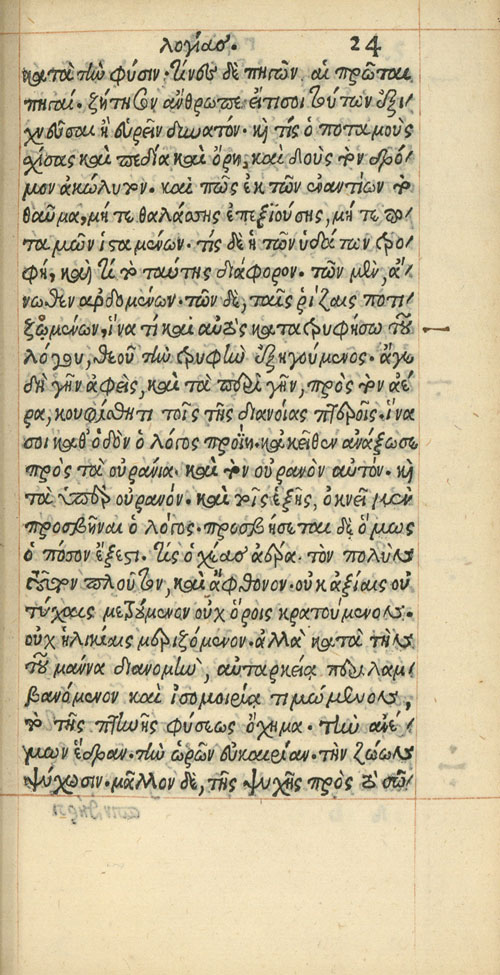 λογίασ. 24
κατὰ τὴν φύσιν. τίνες δὲ πηγῶν, αἱ πρῶται
πηγαί. ζήτησον ἄνθρωπε εἴ τί σοι τούτων ἐξι-
χνεῦσαι ἢ εὑρεῖν δυνατόν. καὶ τίς ὁ ποταμοὺς
σχίσας καὶ πεδία καὶ ὄρη, καὶ δοὺς τὸν δρό-
μον ἀκώλυτον. καὶ πῶς ἐκ τῶν ἐναντίων τὸ
θαῦμα, μήτε θαλάσσης ἐπεξιούσης, μήτε πο-
ταμῶν ἱσταμένων. τίς δὲ ἡ τῶν ὑδάτων τρο-
φὴ, καὶ τί τὸ ταύτης διάφορον. τῶν μὲν, ἄ-
νωθεν ἀρδομένων. τῶν δὲ, ταῖς ῥίζαις ποτι-
ζομένων, ἵνα τί καὶ αὐτὸς κατατρυφήσω τοῦ
λόγου, θεοῦ τὴν τρυφὴν ἐξηγούμενος. ἄγε
δὴ γῆν ἀφεὶς, καὶ τὰ περὶ γῆν, πρὸς τὸν ἀέ-
ρα, κουφίσθητι τοῖς τῆς διανοίας πτεροῖς. ἵνα
σοι καθ' ὁδὸν ὁ λόγος προΐη. κἀκεῖθεν ἀνάξω σε
πρὸς τὰ οὐράνια. καὶ τὸν οὐρανὸν αὐτόν. καὶ
τὰ ὑπὲρ οὐρανόν. καὶ τοῖς ἑξῆς, ὀκνεῖ μὲν
προσβῆναι ὁ λόγος. προσβήσεται δὲ ὅμως
ὁ πόσον ἔξεστι. τίς ὁ χέας ἀέρα. τὸν πολὺν
τοῦτον πλοῦτον, καὶ ἄφθονον. οὐκ ἀξίαις οὐ
τύχαις μετρούμενον οὐχ ὅροις κρατούμενον.
οὐχ ἡλικίαις μεριζόμενον. ἀλλὰ κατὰ τὴν
τοῦ μάννα διανομὴν, αὐταρκείᾳ περιλαμ-
βανόμενον καὶ ἰσομοιρίᾳ τιμώμενον,
τὸ τῆς πτηνῆς φύσεως ὄχημα. τὴν ἀνέ-
μων ἕδραν. τὴν ὡρῶν εὐκαιρίαν. τὴν ζώων
ψύχωσιν. μᾶλλον δὲ, τῆς ψυχῆς πρὸς τὸ σῶ-